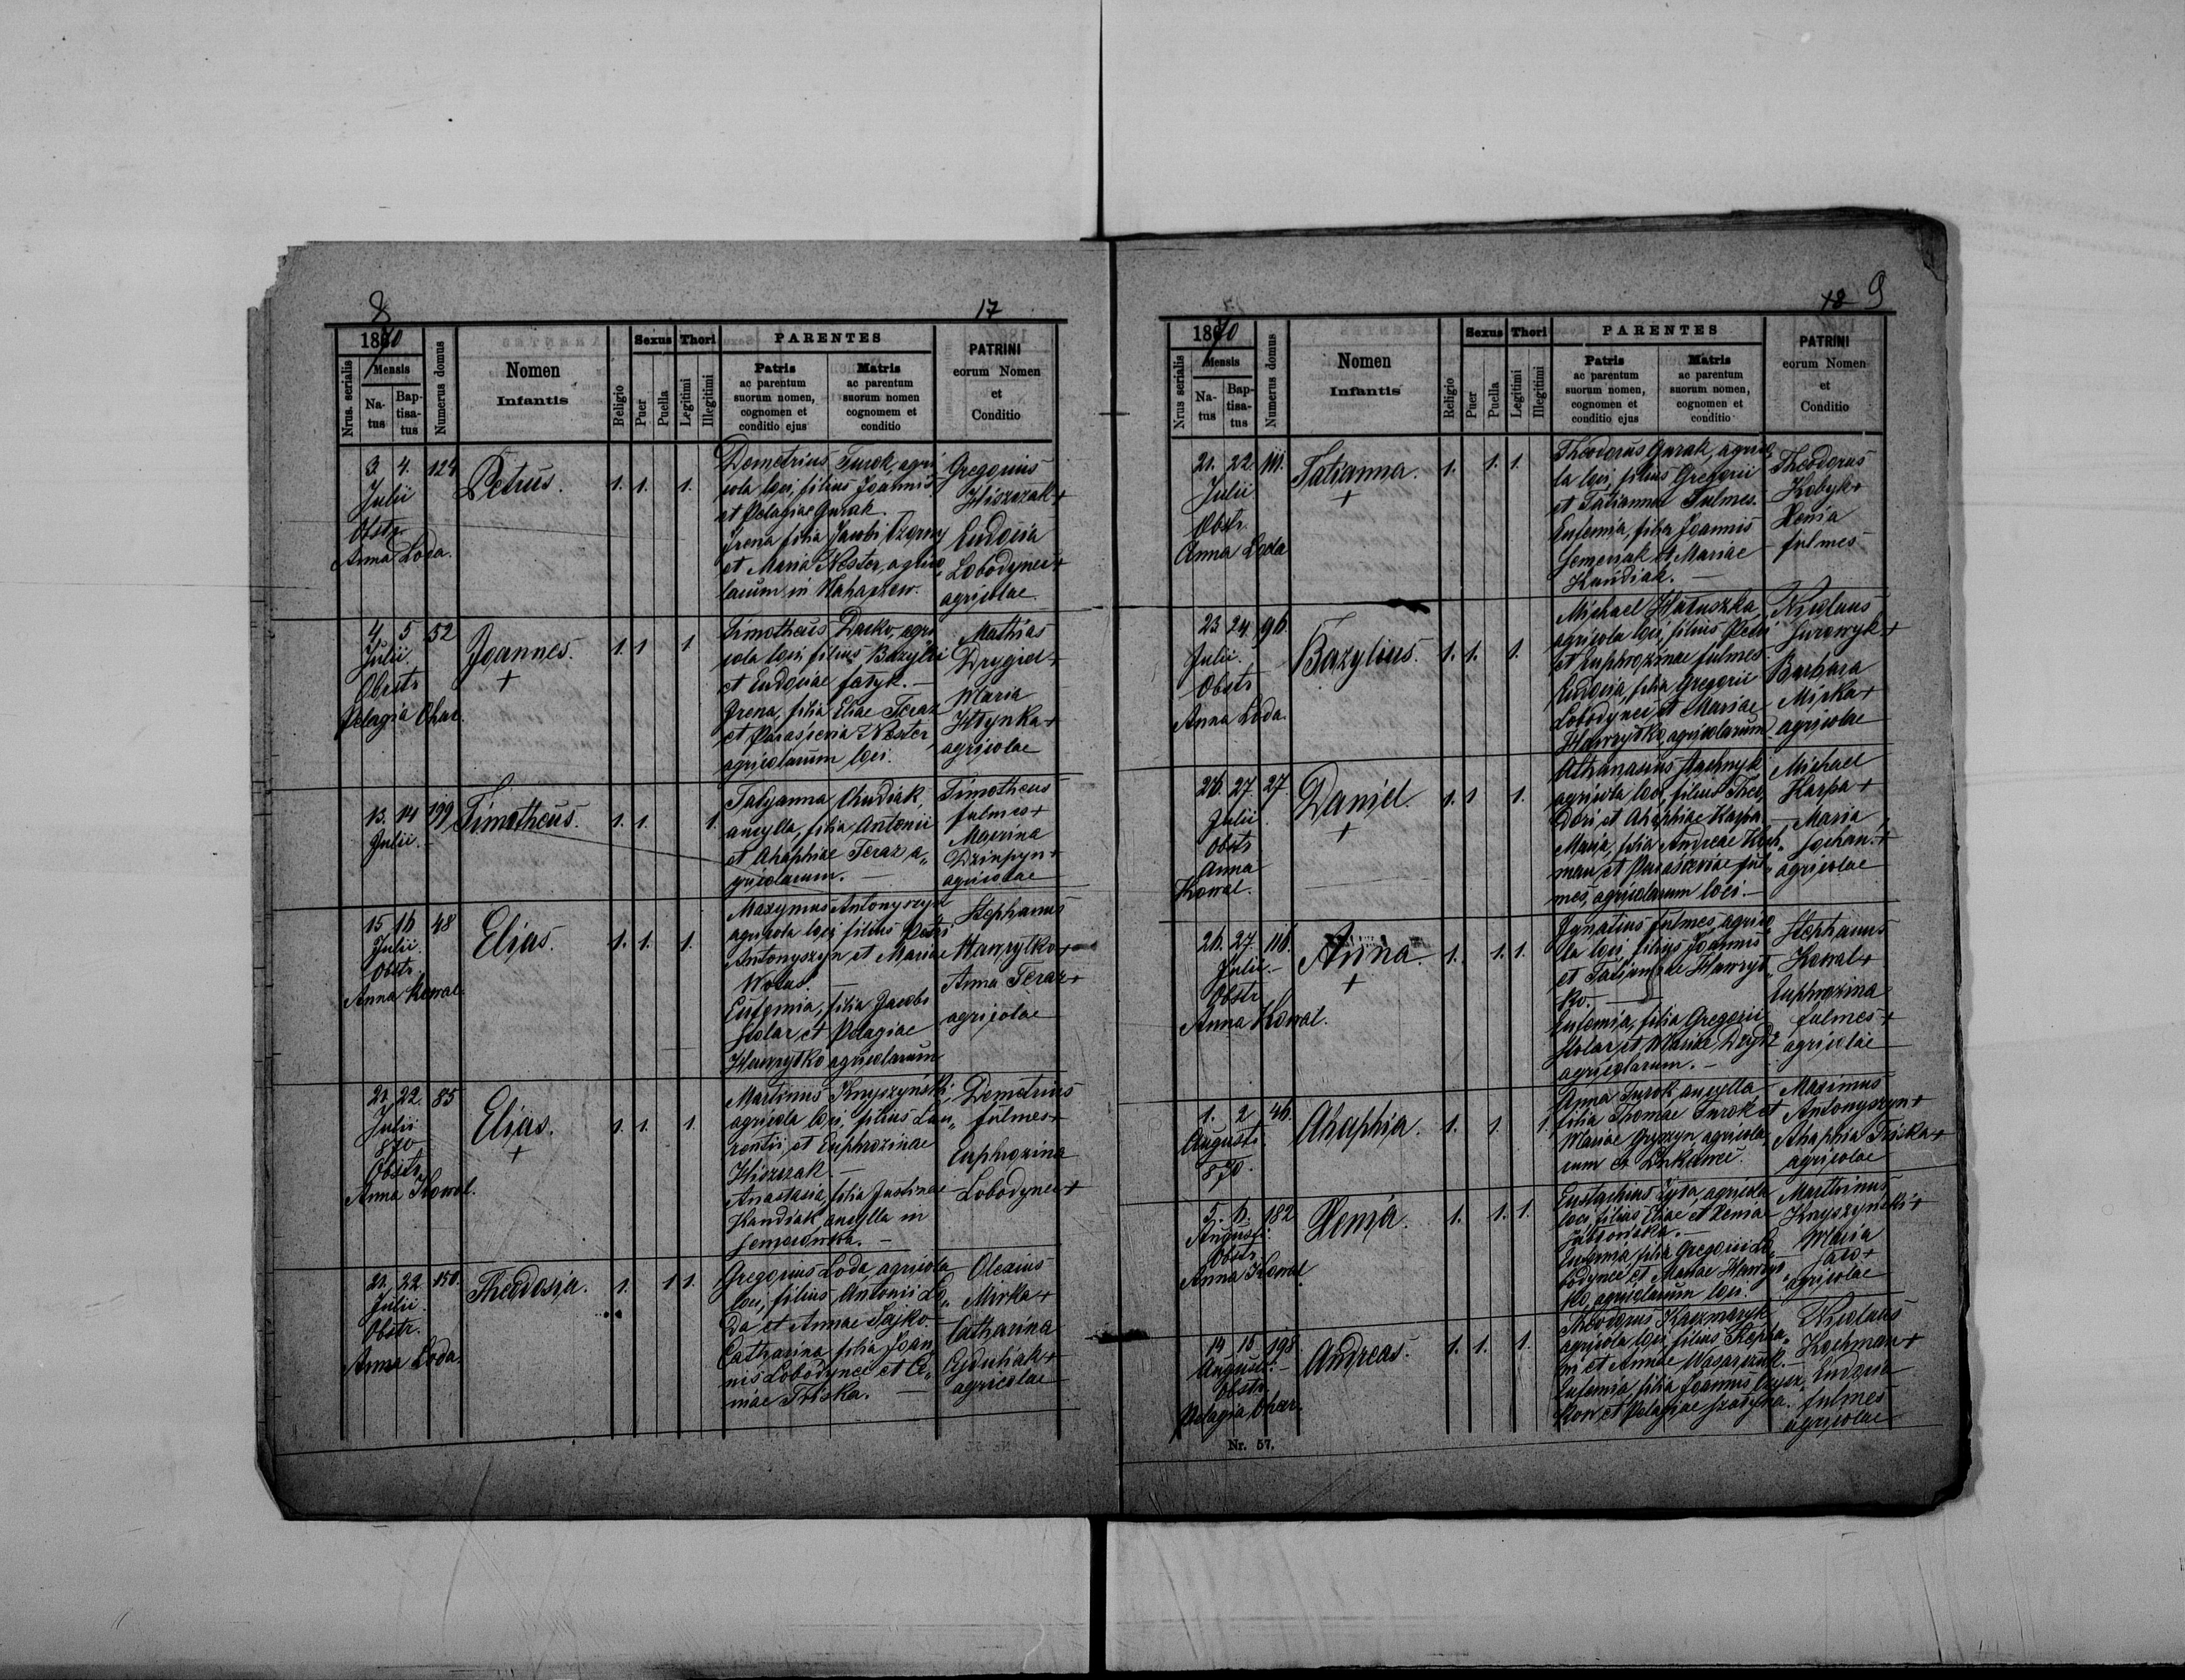 8
17
1870
Nrus. serialis
Mensis
Na-
tus
Bap-
tisa-
tus
Numerus domus
Nomen
Infantis
Religio
Sexus
Puer
Puella
Thori
Legitimi
Illegitimi
PARENTES
Patris
ac parentum
suorum nomen,
cognomen et
conditio ejus
Matris
ac parentum
suorum nomen
cognomem et
conditio
PATRINI
eorum Nomen
et
Conditio
3. 4. 124
Julii
Obstr.
Anna Loda.
Petrus.
1. 1. 1.
Demetrius Turok, agri
cola loci, filius Joannis
et Pelagiae Gurak.
Irena filia Jacobi
et Maria Nester, agrico
larum in
Gregorius
Hiszczak +
Eudoxia
Lobodynec +
agricolae
4. 5 52
Julii
Obstr
Pelagia Char.
Joannes.
+
1. 1 1
Timotheus Dacko, agri
cola loci, filius Bazylii
et Eudoxiae
Irena, filia Eliae Teraz
et Parascevia Nester,
agricolarum loci.
Mathias
Drygid +
Maria
Hlynka +
agricolae
13. 14 199
Julii
Timotheus.
1. 1. 1.
Tatyanna Chudiak,
ancylla, filia Antonii
et Ahaphiae Teraz a„
gricolarum.
Timotheus
fulmes +
Macrina
agricolae
15 16 48
Julii.
Obstr.
Anna Kowal
Elias.
1. 1. 1.
Maxymus Antonyszyn
agricola loci filius Petri
Antonyszyn et Mariae
Eufemia, filia Jacobi
Stolar et Pelagiae
Hawrytko agricolarum
Stephanus
Hawrytko +
Anna Teraz +
agricolae
21. 22. 85
Julii
870
Obstr.
Anna Kowal.
Elias.
+
1. 1. 1.
Martinus Knyszyński,
agricola loci, filius Lau„
rentii, et Euphrozinae
Hiszczak
Anastasia, filia Justinae
Kandiak, ancylla in
Demetrius
fulmes +
Euphrozina
Lobodynec +
21. 22 150.
Julii.
Obstr.
Anna Loda.
Theodosia.
1. 1 1.
Gregorius Loda, agricola
loci, filius Antonii Lo„
da et Annae Sajko.
Catharina filia Joan
nis Lobodynec et
Triska.
Olexius
Mirka +
Catharina
agricolae
18 9
1870
Nrus serialis
Mensis
Na-
tus
Bap-
tisa-
tus
Numerus domus
Nomen
Infantis
Religio
Sexus
Puer
Puella
Thori
Legitimi
Illegitimi
PARENTES
Patris
ac parentum
suorum nomen,
cognomen et
conditio ejus
Matris
ac parentum
suorum nomen,
cognomen et
conditio
PATRINI
eorum Nomen
et
Conditio
21. 22 111.
Julii
Obstr.
Anna Loda
Tatianna.
+
1. 1. 1.
Theodorus Gurak, agrico
la loci, filius Gregorii
et Tatiannae Fulmes.
Eufemia, filia Joannis
et Mariae
Kandiak.
Theodorus
Kobyk +
Xenia
fulmes
23 24. 96.
Julii.
Obstr
Anna Loda.
Bazylius.
1. 1. 1.
Michael
agricola loci, filius Petri
et Euphrozinae fulmes.
Eudoxia, filia Gregorii
Lobodynec et Mariae
Hawrytko, agricolarum
Nicolaus
Barbara
Mirka +
agricolae
26. 27 27
Julii.
Obstr
Anna
Kowal.
Daniel.
+
1. 1 1.
Athanasius
agricola loci, filius Theo,
dori et Ahaphiae Karpa.
Maria, filia Andreae Koch„
man, et Parasceviae ful„
mes, agricolarum loci.
Michael
Karpa +
Maria
agricolae
26. 27. 116.
Julii.
Obstr
Anna Kowal.
Anna.
+
1. 1. 1.
Ignatius fulmes, agrico
la loci, filius Joannis
et Tatiannae Hawryt
ko.
Eufemia, filia Gregorii
Stolar, et Mariae
agricolarum.
Stephanus
Kowal +
Euphrozina
fulmes +
agricolae
1. 2 46.
Augusti.
870.
Ahaphia.
1. 1. 1.
Anna Turok, ancylla,
filia Thomae Turok, et
Mariae agricola
rum
Maximus
Antonyszyn +
Ahaphia Triska +
agricolae
5. 6. 182
Augusti.
Obstr.
Anna Kowal
Xenia.
1. 1. 1.
Eustachius agricola
loci, filius Eliae et Xenia
Eufemia filia Gregorii Lo„
bodynec et Mariae Hawryt„
ko, agricolarum loci.
Marthinus
Knyszyński +
Maria
agricolae
14 15 198.
Augusti.
Obstr.
Pelagia Char.
Andreas.
1. 1. 1.
Theodorus Kaczmaryk
agricola loci, filius Stepha„
ni et Annae
Eufemia, filia Joannis
et Pelagiae
Nicolaus
Kochman +
Eudoxia
fulmes
agricolae
Nr. 57.